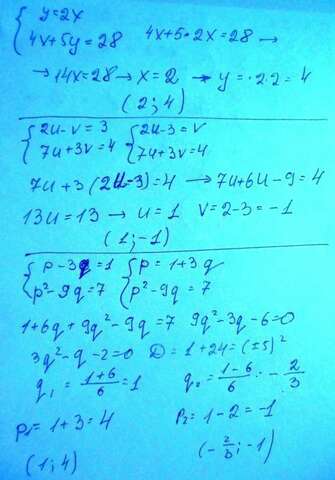 { y=2x
4x+5y=28 4x+5·2x=28 →
→ 14x=28 → x=2 → y=·2·2=4
(2;4)
{ 2u-v=3 { 2u-3=v
7u+3v=4 7u+3v=4
7u+3(2u-3)=4 → 7u+6u-9=4
13u=13 → u=1 v=2-3=-1
(1;-1)
{ p-3q=1 { p=1+3q
p²-9q=7 p²-9q=7
1+6q+9q²-9q=7 9q²-3q-6=0
3q²-q-2=0 D=1+24=(±5)²
q₁=(1+6)/6=1 q₂=(1-6)/6=-2/3
p₁=1+3=4 p₂=1-2=-1
(1;4) (-2/3;-1)